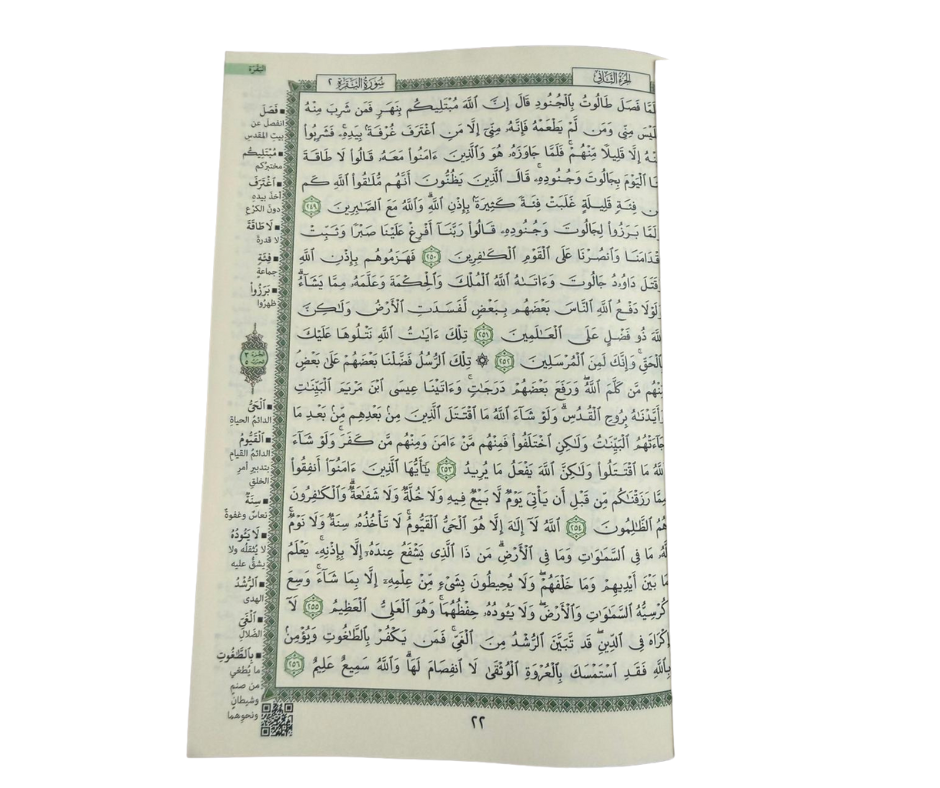 البَقَرَة
الجُزءُ الثَّاني
سُورَةُ البَقَرَةِ ٢
لَمَّا فَصَلَ طَالُوتُ بِٱلْجُنُودِ قَالَ إِنَّ ٱللَّهَ مُبْتَلِيكُم بِنَهَرٍ فَمَن شَرِبَ مِنْهُ
لَيْسَ مِنِّى وَمَن لَّمْ يَطْعَمْهُ فَإِنَّهُۥ مِنِّىٓ إِلَّا مَنِ ٱغْتَرَفَ غُرْفَةًۢ بِيَدِهِۦۚ فَشَرِبُوا۟
نْهُ إِلَّا قَلِيلًا مِّنْهُمْۚ فَلَمَّا جَاوَزَهُۥ هُوَ وَٱلَّذِينَ ءَامَنُوا۟ مَعَهُۥ قَالُوا۟ لَا طَاقَةَ
نَا ٱلْيَوْمَ بِجَالُوتَ وَجُنُودِهِۦۚ قَالَ ٱلَّذِينَ يَظُنُّونَ أَنَّهُم مُّلَٰقُوا۟ ٱللَّهِ كَم
ن فِئَةٍ قَلِيلَةٍ غَلَبَتْ فِئَةً كَثِيرَةًۢ بِإِذْنِ ٱللَّهِۗ وَٱللَّهُ مَعَ ٱلصَّٰبِرِينَ ٢٤٩
لَمَّا بَرَزُوا۟ لِجَالُوتَ وَجُنُودِهِۦ قَالُوا۟ رَبَّنَآ أَفْرِغْ عَلَيْنَا صَبْرًا وَثَبِّتْ
قْدَامَنَا وَٱنصُرْنَا عَلَى ٱلْقَوْمِ ٱلْكَٰفِرِينَ ٢٥٠ فَهَزَمُوهُم بِإِذْنِ ٱللَّهِ
قَتَلَ دَاوُۥدُ جَالُوتَ وَءَاتَىٰهُ ٱللَّهُ ٱلْمُلْكَ وَٱلْحِكْمَةَ وَعَلَّمَهُۥ مِمَّا يَشَآءُۗ
لَوْلَا دَفْعُ ٱللَّهِ ٱلنَّاسَ بَعْضَهُم بِبَعْضٍ لَّفَسَدَتِ ٱلْأَرْضُ وَلَٰكِنَّ
للَّهَ ذُو فَضْلٍ عَلَى ٱلْعَٰلَمِينَ ٢٥١ تِلْكَ ءَايَٰتُ ٱللَّهِ نَتْلُوهَا عَلَيْكَ
بِٱلْحَقِّۚ وَإِنَّكَ لَمِنَ ٱلْمُرْسَلِينَ ٢٥٢ ۞ تِلْكَ ٱلرُّسُلُ فَضَّلْنَا بَعْضَهُمْ عَلَىٰ بَعْضٍۘ
نْهُم مَّن كَلَّمَ ٱللَّهُۖ وَرَفَعَ بَعْضَهُمْ دَرَجَٰتٍۚ وَءَاتَيْنَا عِيسَى ٱبْنَ مَرْيَمَ ٱلْبَيِّنَٰتِ
وَأَيَّدْنَٰهُ بِرُوحِ ٱلْقُدُسِۗ وَلَوْ شَآءَ ٱللَّهُ مَا ٱقْتَتَلَ ٱلَّذِينَ مِنۢ بَعْدِهِم مِّنۢ بَعْدِ مَا
جَآءَتْهُمُ ٱلْبَيِّنَٰتُ وَلَٰكِنِ ٱخْتَلَفُوا۟ فَمِنْهُم مَّنْ ءَامَنَ وَمِنْهُم مَّن كَفَرَۚ وَلَوْ شَآءَ
للَّهُ مَا ٱقْتَتَلُوا۟ وَلَٰكِنَّ ٱللَّهَ يَفْعَلُ مَا يُرِيدُ ٢٥٣ يَٰٓأَيُّهَا ٱلَّذِينَ ءَامَنُوٓا۟ أَنفِقُوا۟
مِمَّا رَزَقْنَٰكُم مِّن قَبْلِ أَن يَأْتِىَ يَوْمٌ لَّا بَيْعٌ فِيهِ وَلَا خُلَّةٌ وَلَا شَفَٰعَةٌۗ وَٱلْكَٰفِرُونَ
هُمُ ٱلظَّٰلِمُونَ ٢٥٤ ٱللَّهُ لَآ إِلَٰهَ إِلَّا هُوَ ٱلْحَىُّ ٱلْقَيُّومُۚ لَا تَأْخُذُهُۥ سِنَةٌ وَلَا نَوْمٌۚ
لَّهُۥ مَا فِى ٱلسَّمَٰوَٰتِ وَمَا فِى ٱلْأَرْضِۗ مَن ذَا ٱلَّذِى يَشْفَعُ عِندَهُۥٓ إِلَّا بِإِذْنِهِۦۚ يَعْلَمُ
مَا بَيْنَ أَيْدِيهِمْ وَمَا خَلْفَهُمْۖ وَلَا يُحِيطُونَ بِشَىْءٍ مِّنْ عِلْمِهِۦٓ إِلَّا بِمَا شَآءَۚ وَسِعَ
كُرْسِيُّهُ ٱلسَّمَٰوَٰتِ وَٱلْأَرْضَۖ وَلَا يَـُٔودُهُۥ حِفْظُهُمَاۚ وَهُوَ ٱلْعَلِىُّ ٱلْعَظِيمُ ٢٥٥ لَآ
إِكْرَاهَ فِى ٱلدِّينِۖ قَد تَّبَيَّنَ ٱلرُّشْدُ مِنَ ٱلْغَىِّۚ فَمَن يَكْفُرْ بِٱلطَّٰغُوتِ وَيُؤْمِنۢ
بِٱللَّهِ فَقَدِ ٱسْتَمْسَكَ بِٱلْعُرْوَةِ ٱلْوُثْقَىٰ لَا ٱنفِصَامَ لَهَاۗ وَٱللَّهُ سَمِيعٌ عَلِيمٌ ٢٥٦
■ فَصَلَ
انفصل عن
بيت المقدس
■ مُبْتَلِيكُم
مختبركم
■ ٱغْتَرَفَ
أخذ بيدِهِ
دونَ الكَرْعِ
■ لَا طَاقَةَ
لا قدرةَ
■ فِئَةٍ
جماعةٍ
■ بَرَزُوا۟
ظهرُوا
■ ٱلْحَىُّ
الدائمُ الحياةِ
■ ٱلْقَيُّومُ
الدائمُ القيامِ
بتدبيرِ أمرِ
الخلقِ
■ سِنَةٌ
نعاسٌ وغفوةٌ
■ لَا يَـُٔودُهُۥ
لا يُثقلُه ولا
يشقُّ عليه
■ ٱلرُّشْدُ
الهدى
■ ٱلْغَىِّ
الضَّلالِ
■ بِٱلطَّٰغُوتِ
ما يُطغي
من صنمٍ
وشيطانٍ
ونحوِهما
٤٢